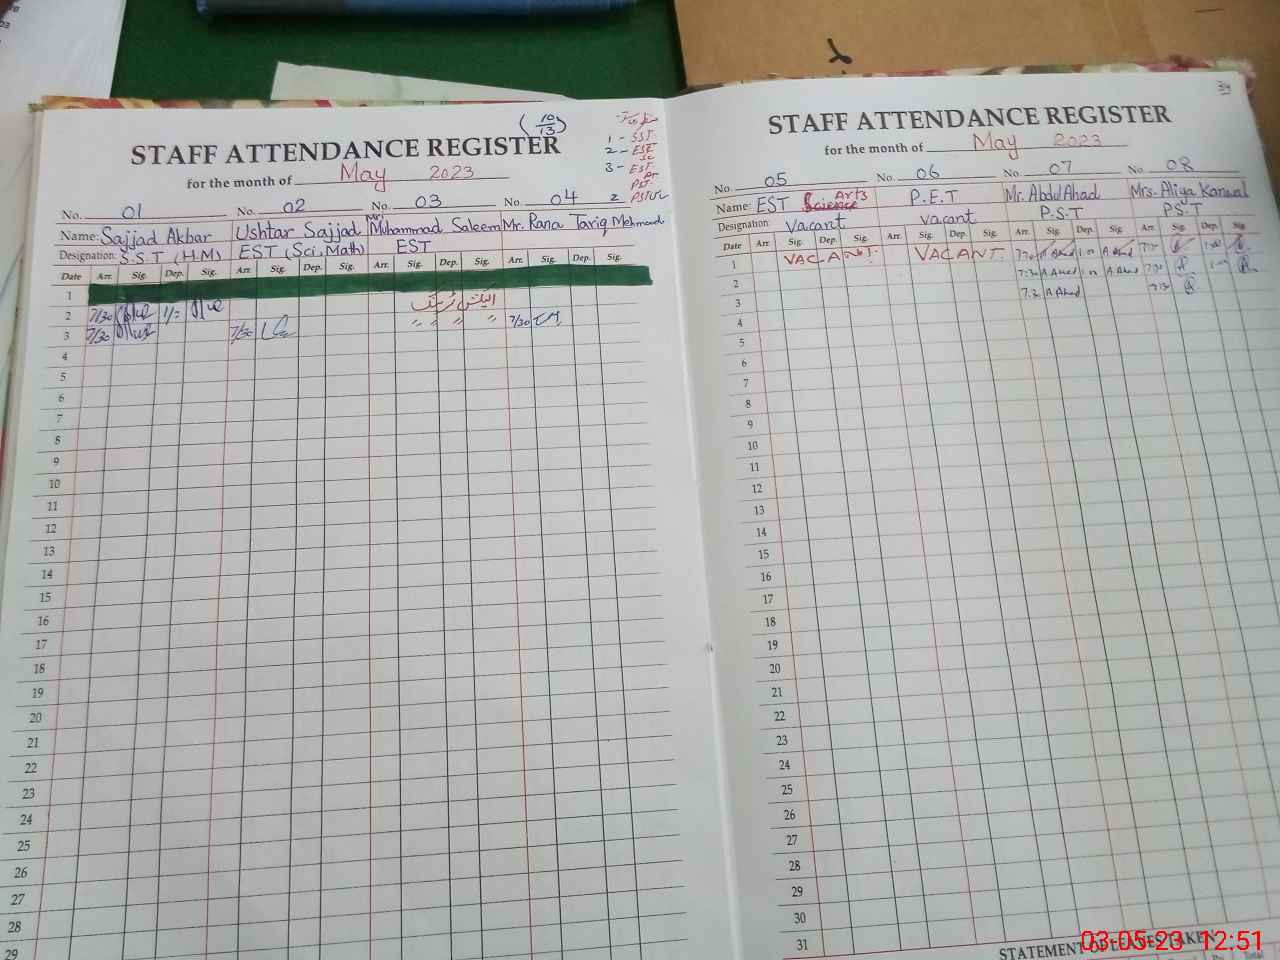 (10/13)
STAFF ATTENDANCE REGISTER
for the month of May 2023
1 - SST
2 - ESE Sc
3 - EST
No. 01 No. 02 No. 03 No. 04
Name: Sajjad Akbar Ushtar Sajjad Mr. Muhammad Saleem Mr. Rana Tariq Mehmood
Designation: S.S.T (H.M) EST (Sci, Math) EST
Date Arr. Sig. Dep. Sig. Arr. Sig. Dep. Sig. Arr. Sig. Dep. Sig. Arr. Sig. Dep. Sig.
1
2 7/30
3 7/30 7/30 " " " " 7/30
4
5
6
7
8
9
10
11
12
13
14
15
16
17
18
19
20
21
22
23
24
25
26
27
28
29
STAFF ATTENDANCE REGISTER
for the month of May 2023
No. 05 No. 06 No. 07 No. 08
Name: EST Science Arts P.E.T Mr. Abdul Ahad Mrs. Aliya Kanwal
Designation: Vacant Vacant P.S.T PS.T
Date Arr. Sig. Dep. Sig. Arr. Sig. Dep. Sig. Arr. Sig. Dep. Sig. Arr. Sig. Dep. Sig
1 VACANT. VACANT. A Ahad A Ahad
2 A Ahad A Ahad
3 A Ahad
4
5
6
7
8
9
10
11
12
13
14
15
16
17
18
19
20
21
22
23
24
25
26
27
28
29
30
31
STATEMENT OF LEAVES TAKEN
Total
03-05-23 12:51